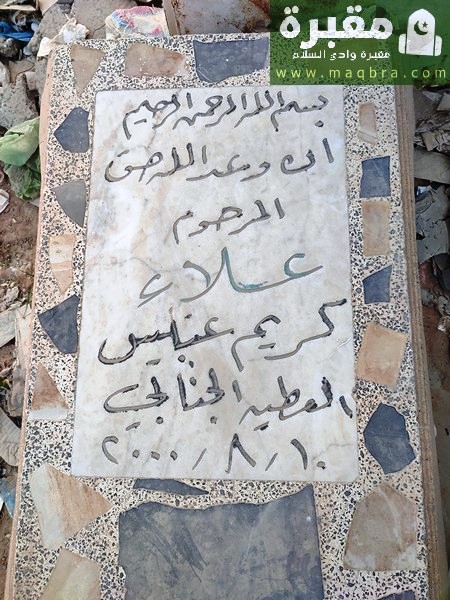 مقبرة
مقبرة وادي السلام
www.maqbra.com
بسم الله الرحمن الرحيم
ان وعد الله حق
المرحوم
علاء
كريم عنبليس
العطيه الجنابي
٢٠٠٠/٨/١٠